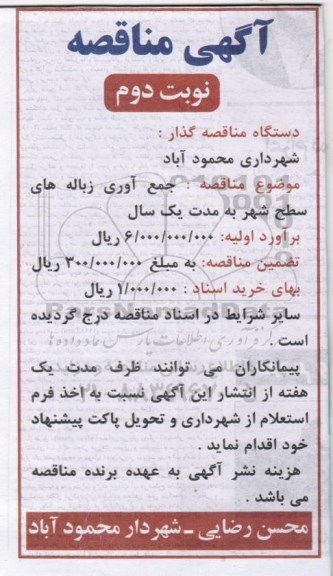 آگهی مناقصه
نوبت دوم
دستگاه مناقصه گذار :
شهرداری محمود آباد
موضوع مناقصه : جمع آوری زباله های
سطح شهر به مدت یک سال
برآورد اولیه: ۶/۰۰۰/۰۰۰/۰۰۰ ریال
تضمین مناقصه: به مبلغ ۳۰۰/۰۰۰/۰۰۰ ریال
بهای خرید اسناد : ۱/۰۰۰/۰۰۰ ریال
سایر شرایط در اسناد مناقصه درج گردیده
است .
پیمانکاران می توانند ظرف مدت یک
هفته از انتشار این آگهی نسبت به اخذ فرم
استعلام از شهرداری و تحویل پاکت پیشنهاد
خود اقدام نماید .
هزینه نشر آگهی به عهده برنده مناقصه
می باشد .
محسن رضایی ـ شهردار محمود آباد